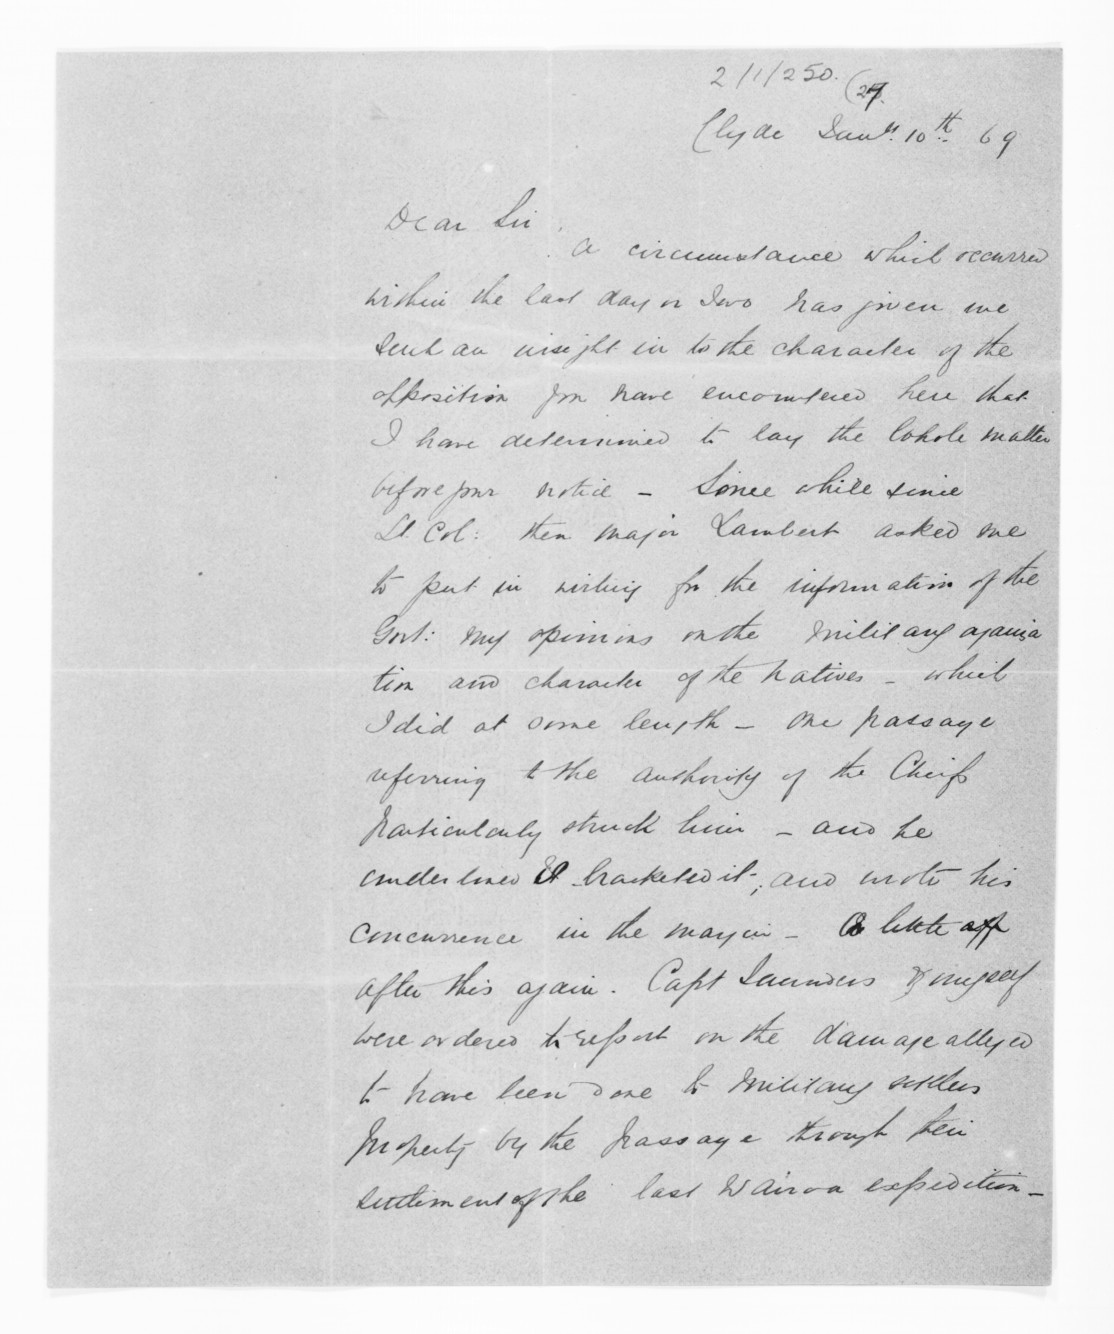 2/1/250.
(27.
Clyde Jany. 10th. 69
Dear Sir,
A circumstance which occurred
within the last day or Two has given me
such an insight in to the character of the
opposition you have encountered here that
I have determined to lay the whole matter
before your notice – Some while since
Lt Col: then Major Lambert asked me
to put in writing for the information of the
Govt: my opinions on the military organiza
tion and character of the Natives – which
I did at some length – One passage
referring to the authority of the Cheifs
particularly struck him – and he
underlined & bracketed it, and wrote his
concurrence in the margin – A little
after this again. Capt Saunders & myself
were ordered to report on the damage alleged
to have been done to Military settlers
property by the passage through their
settlement of the last Wairoa expedition –